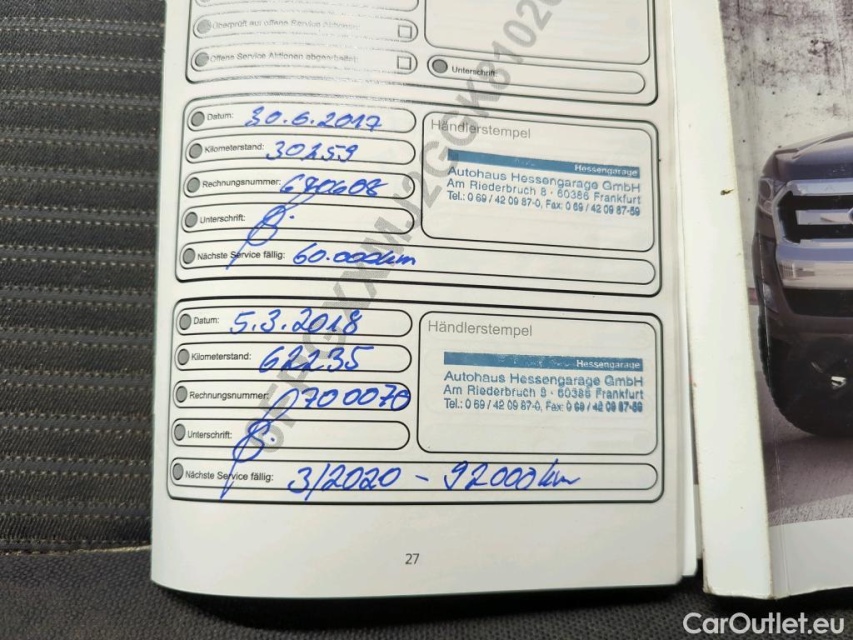 Überprüft auf offene Service Aktionen
Offene Service Aktionen abgearbeitet:
Unterschrift:
Datum: 30.6.2017
Kilometerstand: 30259
Rechnungsnummer: 690608
Unterschrift:
Nächste Service fällig: 60.000km
Händlerstempel
Hessengarage
Autohaus Hessengarage GmbH
Am Riederbruch 8 - 60386 Frankfurt
Tel.: 0 69 / 42 09 87-0, Fax: 0 69 / 42 09 87-59
Datum: 5.3.2018
Kilometerstand: 62235
Rechnungsnummer: 0700070
Unterschrift:
Nächste Service fällig: 3/2020 - 92000km
Händlerstempel
Hessengarage
Autohaus Hessengarage GmbH
Am Riederbruch 8 - 60386 Frankfurt
Tel.: 0 69 / 42 09 87-0, Fax: 0 69 / 42 09 87-59
27
CarOutlet.eu